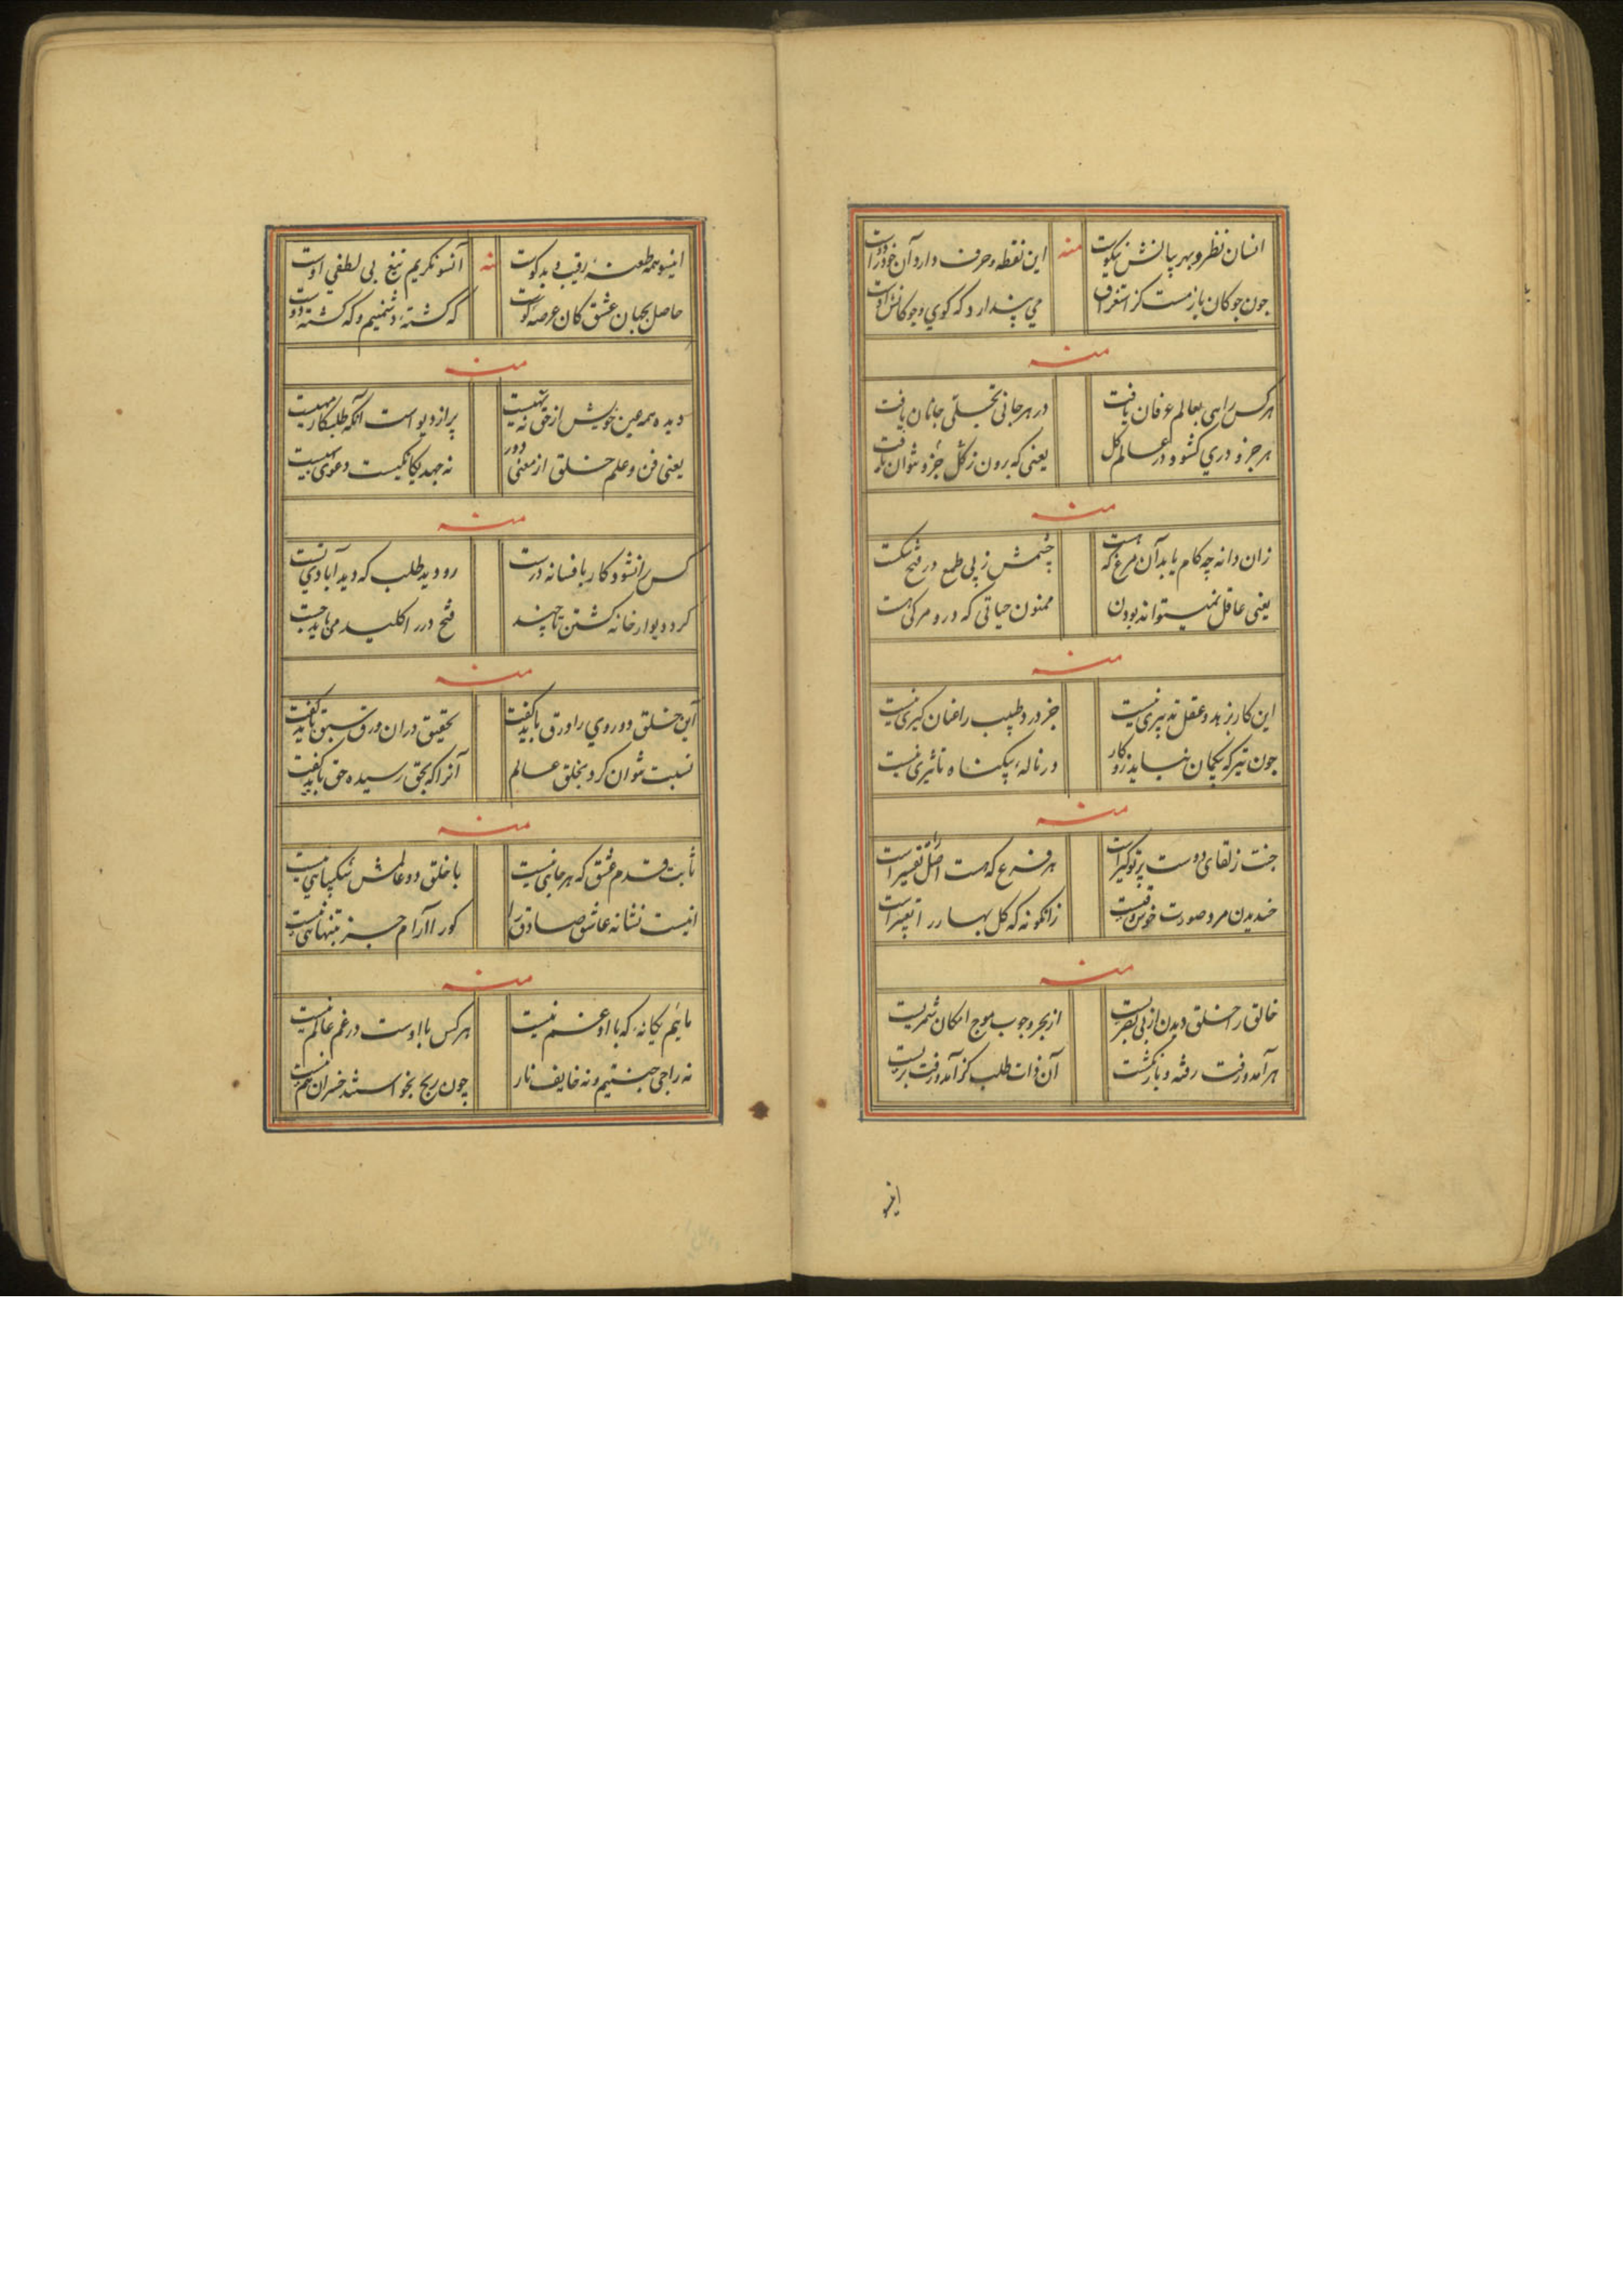 انسان نظر و بهر پیالنش نیکوست منه این نقطه و حرف دارد آن خود را دوست
چون چوکان باز مست کز استغراق می پندارد که کوی و چوکانش اوست
منه
هر کس راهی بعالم عرفان یافت در هر جانی تجلی جانان یافت
هر جزو دری کشود در عالم کل یعنی که برون ز کل جزو نتوان یافت
منه
زان دانه چه کام یابد آن مرغ که هست چشمش ز پی طمع در فتح شکست
یعنی عاقل نمیتواند بودن ممنون حیاتی که درو مرکی هست
منه
این کار بزهد و عقل تدبیری نیست جز درد طبیب را عنان کیری نیست
چون تیر که بیکمان نیاید در کار در ناله بیکناه تاثیری نیست
منه
جنت ز لقای دوست پرتوکیر است هر فرع که هست اصل را تفسیر است
خندیدن مرد صورت خوش وقتیست زانکونه که کل بهار را تعبیر است
منه
خالق را خلق دیدن از بی بصریست از بحر وجوب موج امکان ثمریست
هر آمد و رفت رفته و باز نکشت آن ذات طلب کز آمد و رفت بریست
اینسو
اینسو همه طعنه رقیب بد کوست منه آنسو نکریم تیغ بی لطفی اوست
حاصل بجهان عشق کان عرصه اوست که کشته دشمنیم و که کشته دوست
منه
دیده همه عین خویش از حق نه تهیست پر از دیو است آنکه طلبکار مهیست
یعنی فن و علم خلق از معنی دور نه جهد یکانکیست دعوی
منه
کس را نشود کار بافسانه درست رو دید طلب که دید آبادی تست
کرد دیوار خانه کشتن تا چند فتح در را کلید می باید جست
منه
این خلق دو روی را ورق باید کفت تحقیق در آن ورق سبق باید کفت
نسبت نتوان کرد بخلق عالم آنرا که بحق رسیده حق باید کفت
منه
ثابت قدم عشق که هر جایی نیست با خلق دو عالمش شکیبایی نیست
اینست نشانه عاشق صادق را کو را آرام جز بتنهایی نیست
منه
مائیم یکانه که با او غم نیست هر کس با اوست در غم عالم نیست
نه راجی جنتیم و نه خایف نار چون ربح نخواستند خسران هم نیست